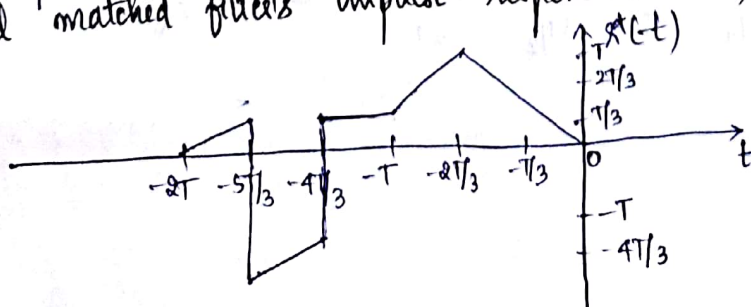 matched filter's impulse
x*(-t)
T
2T/3
T/3
-2T -5T/3 -4T/3 -T -2T/3 -T/3 0 t
-T
-4T/3